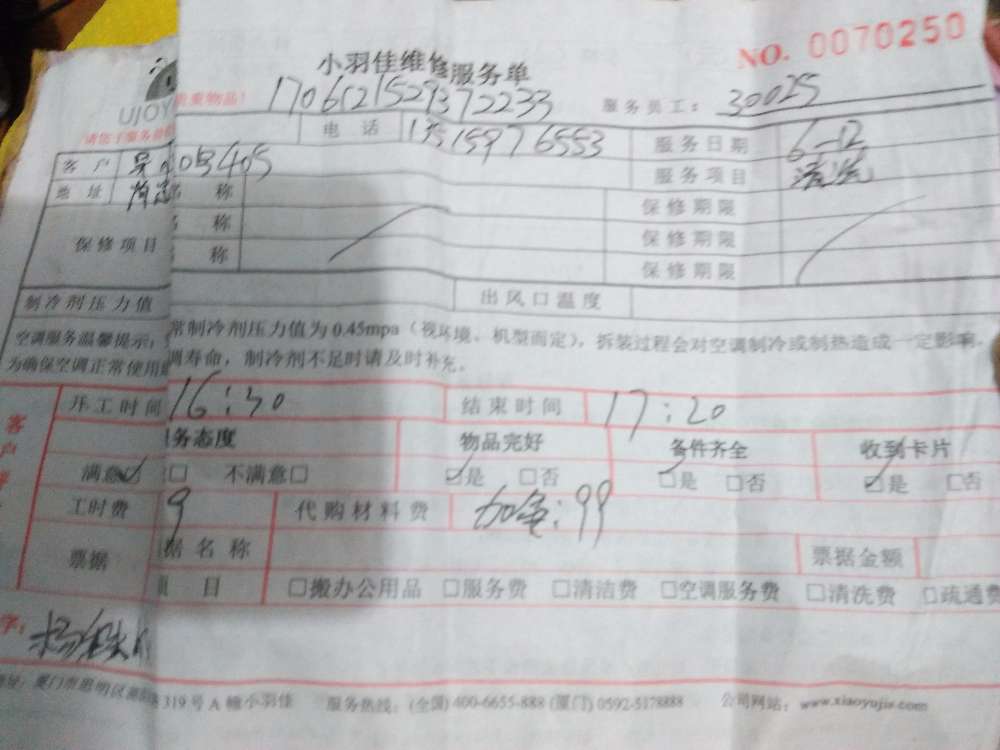 小羽佳维修服务单
NO. 0070250
UJOY
贵重物品!
1706121529372233
服务员工: 30025
电话 13515976553 服务日期 6-12
客户 405 服务项目 清洗
地址 名称 保修期限
保修项目 称 保修期限
称 保修期限
制冷剂压力值 出风口温度
空调服务温馨提示: 常制冷剂压力值为 0.45mpa (视环境、机型而定), 拆装过程会对空调制冷或制热造成一定影响,
为确保空调正常使用 调寿命, 制冷剂不足时请及时补充。
开工时间 16:30 结束时间 17:20
服务态度 物品完好 备件齐全 收到卡片
满意☑ □ 不满意□ ☑是 □否 ☑是 □否 ☑是 □否
工时费 9 代购材料费 :99
票据 据名称 票据金额
目 □搬办公用品 □服务费 □清洁费 □空调服务费 □清洗费 □疏通费
字:
地址: 厦门市思明区 319号A幢小羽佳 服务热线: (全国) 400-6655-888 (厦门) 0592-5178888 公司网站: www.xiaoyujia.com